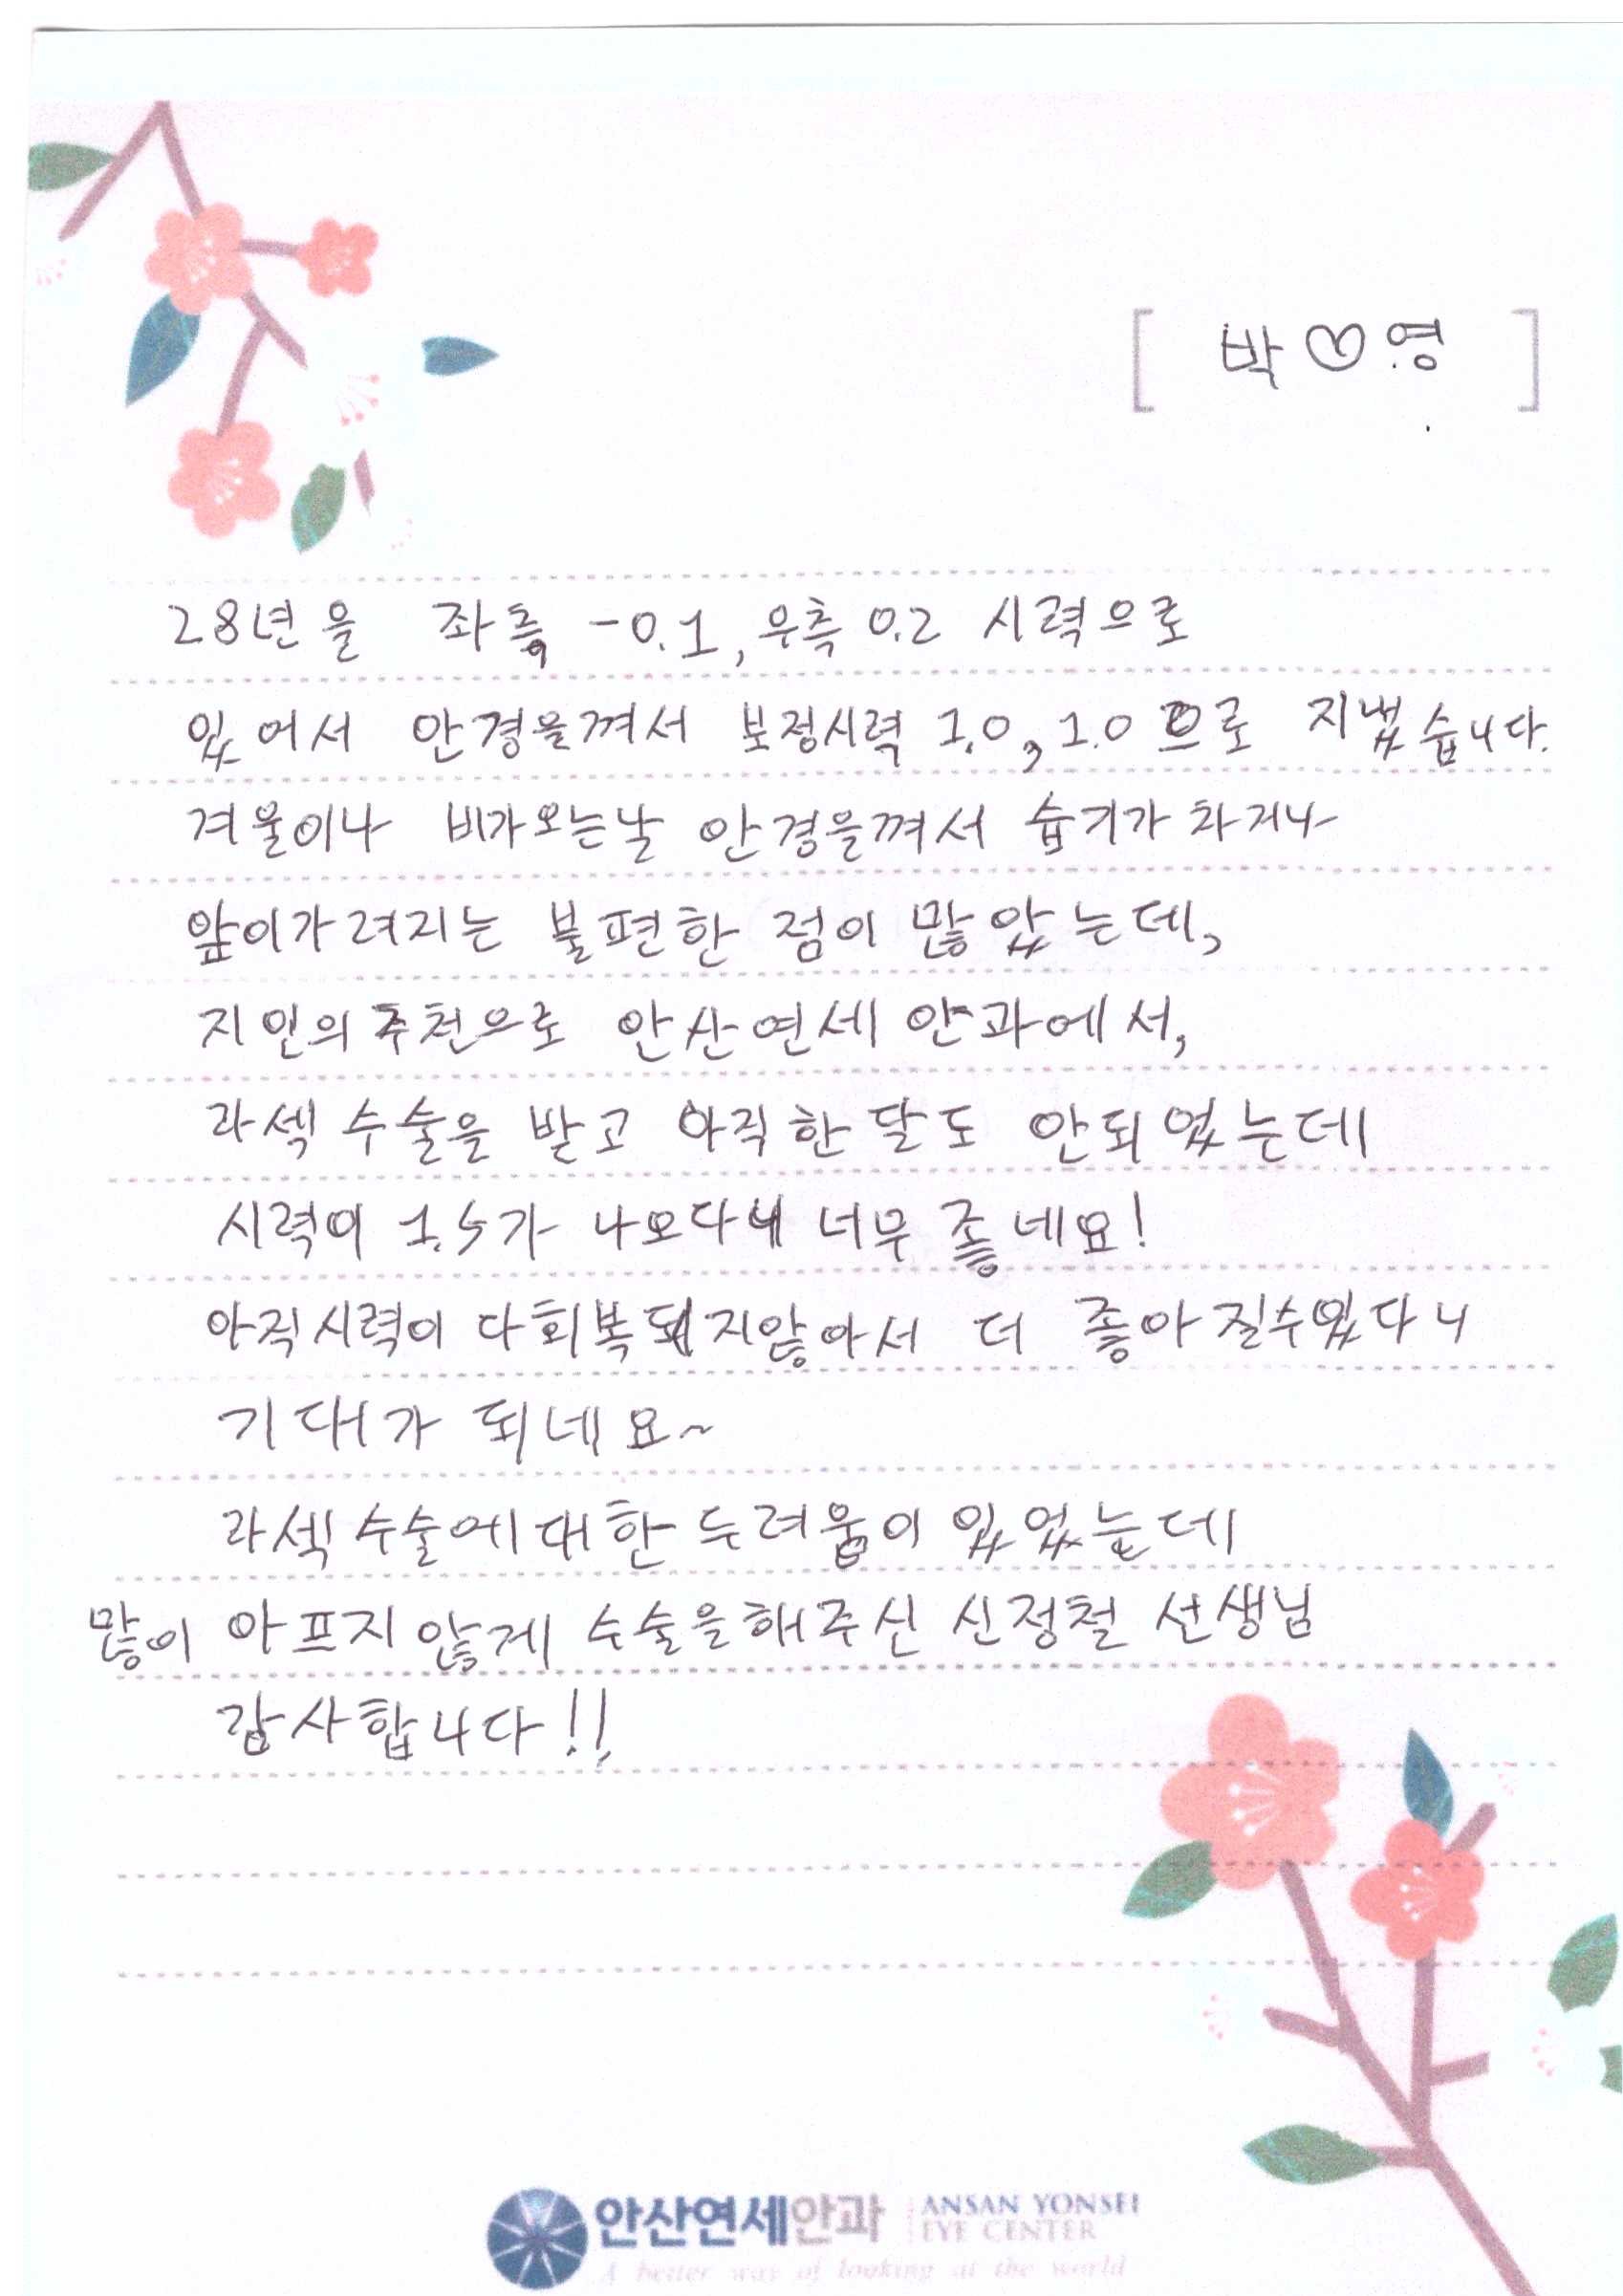 [ 박♡영 ]
28년을 좌측 -0.1, 우측 0.2 시력으로
있어서 안경을껴서 보정시력 1.0, 1.0으로 지냈습니다.
겨울이나 비가오는날 안경을껴서 습기가 차거나
앞이가려지는 불편한 점이 많았는데,
지인의 추천으로 안산연세 안과에서,
라섹 수술을 받고 아직한달도 안되었는데
시력이 1.5가 나오다니 너무 좋네요!
아직시력이 다회복되지않아서 더 좋아질수있다니
기대가 되네요~
라섹수술에대한 두려움이 있었는데
많이 아프지않게 수술을해주신 신정철 선생님
감사합니다!!
안산연세안과 ANSAN YONSEI
EYE CENTER
A better way of looking at the world